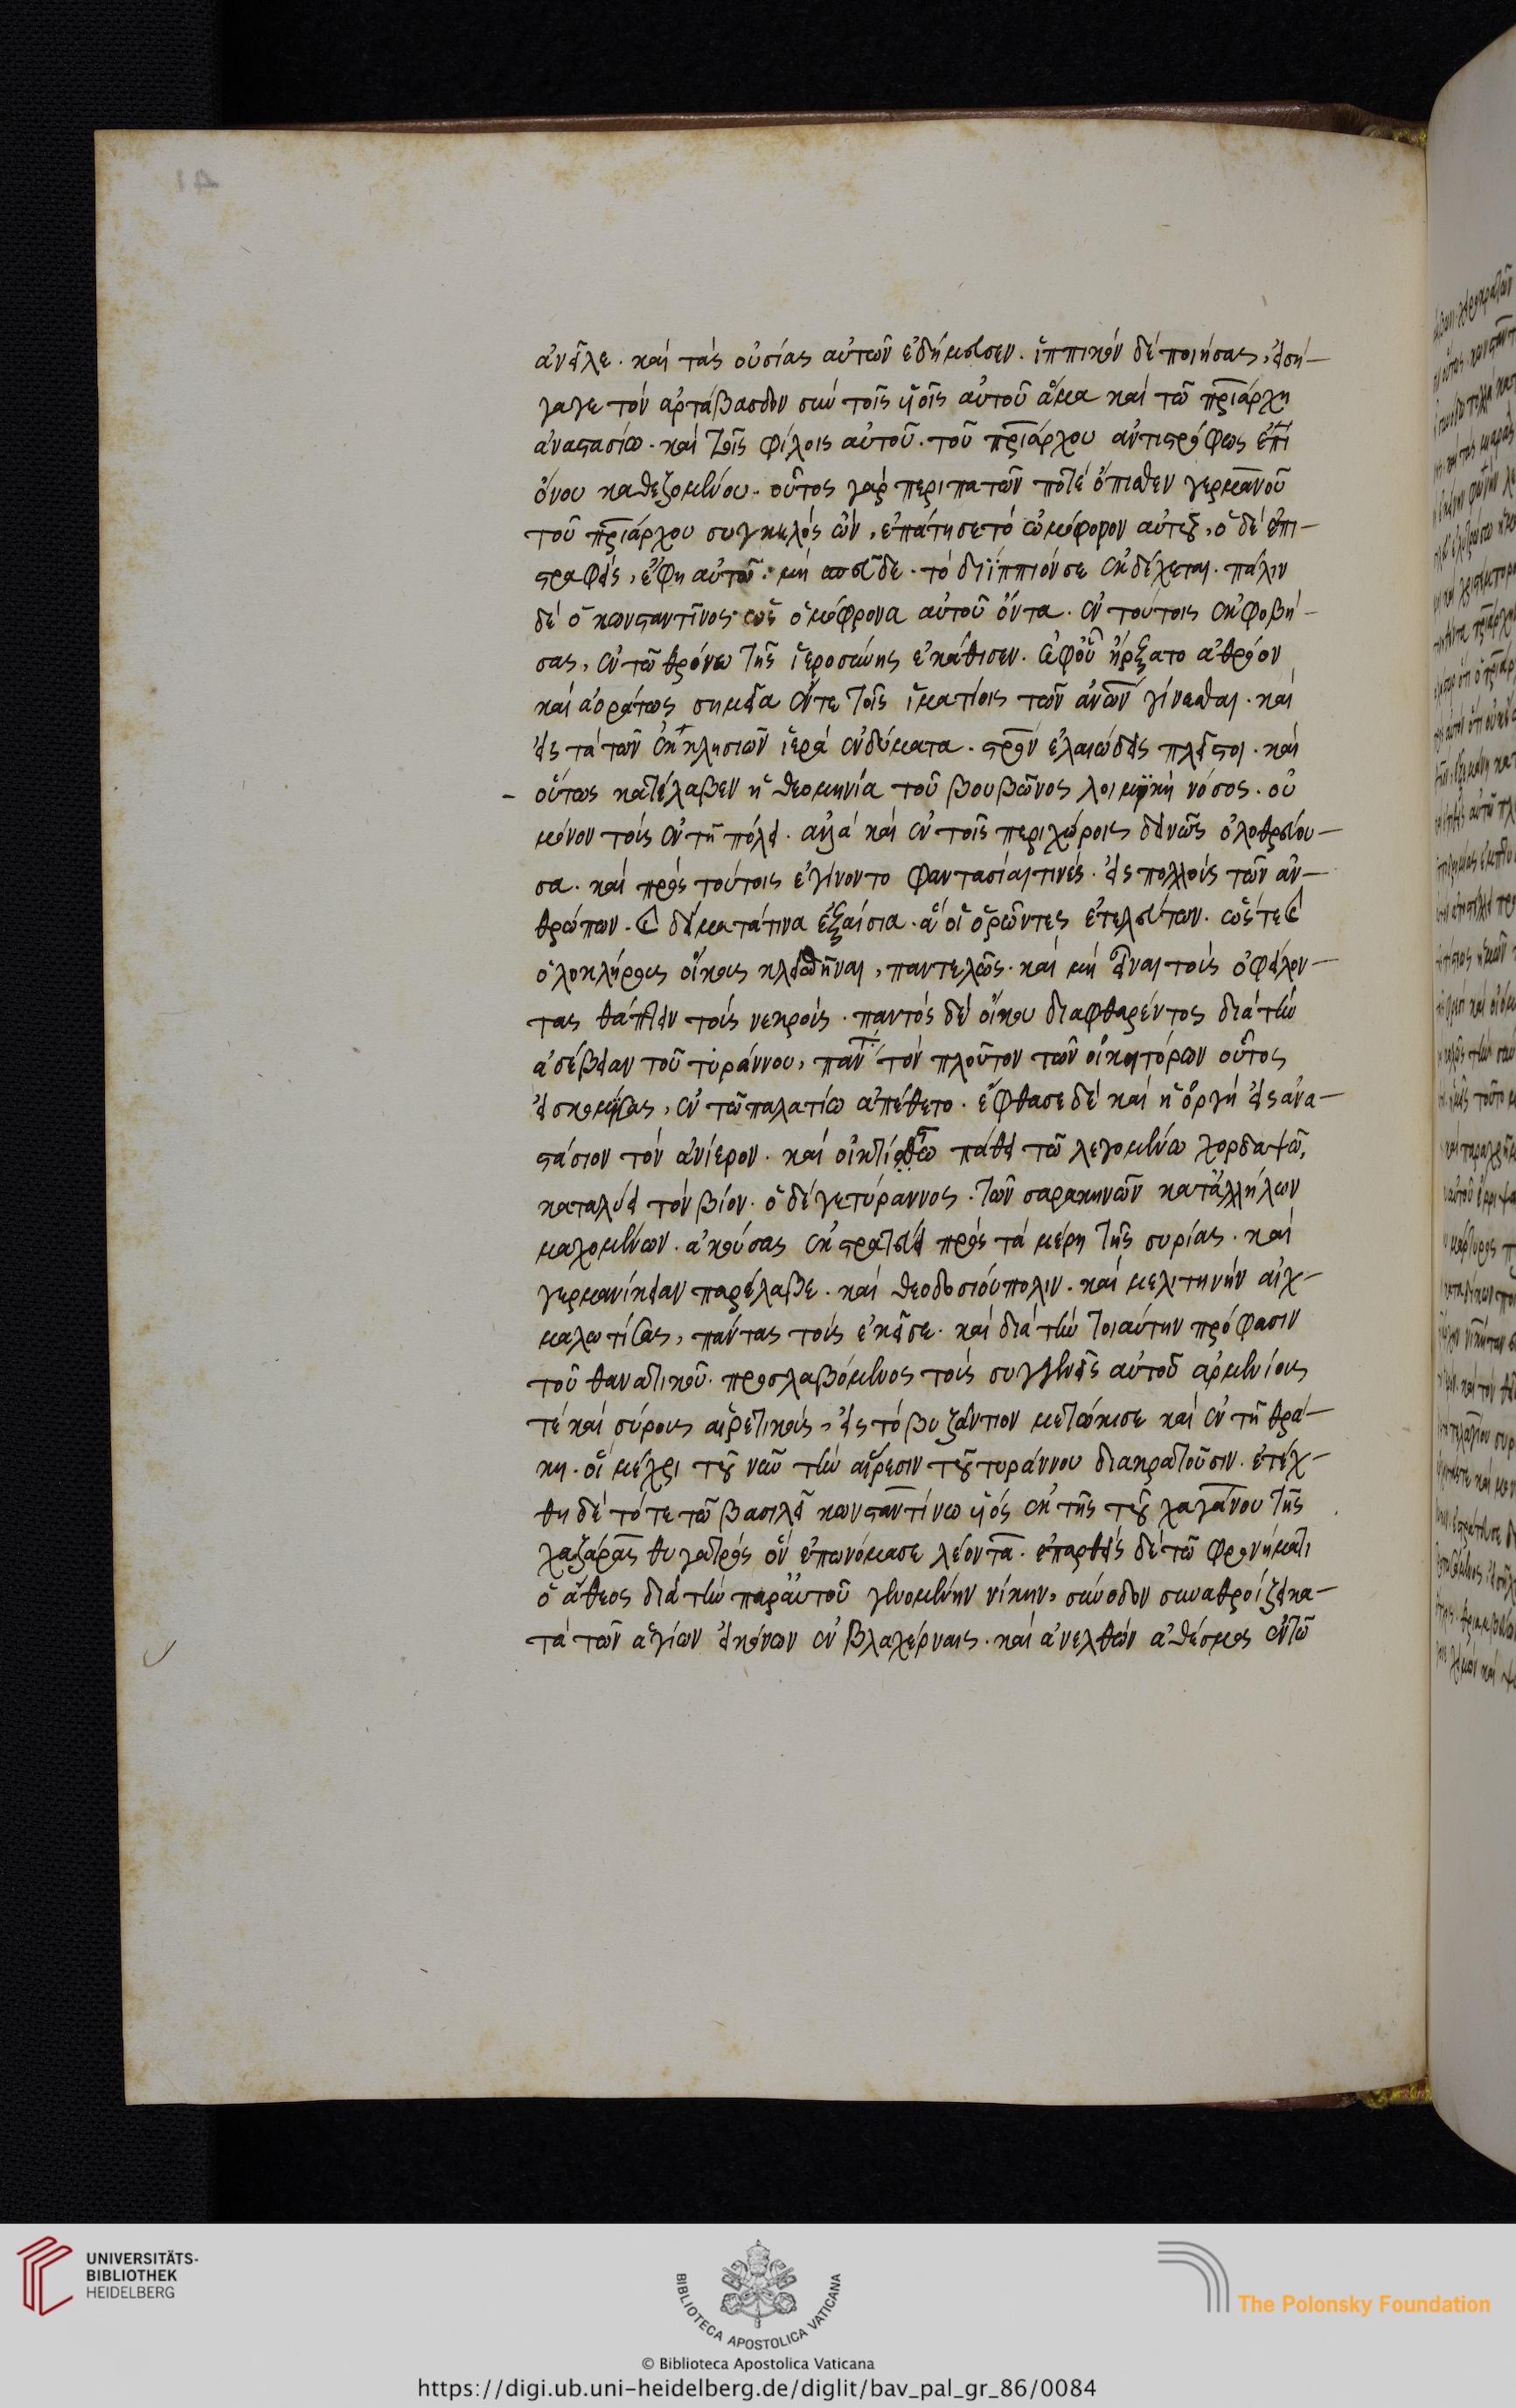 ἀνεῖλε. καὶ τὰς οὐσίας αὐτῶν ἐδήμευσεν. ἱππικὸν δὲ ποιήσας, εἰσή-
γαγε τὸν ἀρτάβασδον σὺν τοῖς υἱοῖς αὐτοῦ ἅμα καὶ τῶ πριάρχη
ἀναστασίω. καὶ τοῖς φίλοις αὐτοῦ. τοῦ πριάρχου ἀντιστρόφως ἐπὶ
ὄνου καθεζομένου. οὗτος γὰρ περιπατῶν ποτὲ ὄπισθεν γερμανοῦ
τοῦ πριάρχου συγκελὸς ὢν, ἐπάτησε τὸ ὠμόφορον αὐτοῦ, ὁ δὲ ἐπι-
στραφεὶς, ἔφη αὐτῶ· μὴ σπεῦδε. τὸ διΐππιόν σε ἐκδέχεται. πάλιν
δὲ ὁ κωνσταντῖνος ὡς ὁμόφρονα αὐτοῦ ὄντα. ἐν τούτοις ἐκφοβή-
σας, ἐν τῶ θρόνω τῆς ἱεροσύνης ἐκάθισεν. ἀφοῦ ἤρξατο ἀθρόον
καὶ ἀοράτως σημεῖα ἔν τε τοῖς ἱματίοις τῶν ἀνῶν γίνεσθαι. καὶ
εἰς τὰ τῶν ἐκκλησιῶν ἱερὰ ἐνδύματα. στρὸν ἐλαιώδεις πλεῖστοι. καὶ
οὕτως κατέλαβεν ἡ θεομηνία τοῦ βουβῶνος λοιμϊκὴ νόσος. οὐ
μόνον τοὺς ἐν τῆ πόλει. ἀλλὰ καὶ ἐν τοῖς περιχώροις δεινῶς ὀλοθρεύου-
σα. καὶ πρὸς τούτοις ἐγίνοντο φαντασίαι τινὲς. εἰς πολλοὺς τῶν ἀν-
θρώπων. καὶ δείματά τινα ἐξαίσια. ἃ οἱ ὁρῶντες ἐτελεύτων. ὥστε καὶ
ὁλοκλήρους οἴκους κλεισθῆναι, παντελῶς. καὶ μὴ εἶναι τοὺς ὀφείλον-
τας θάπτειν τοὺς νεκρούς. παντὸς δὲ οἴκου διαφθαρέντος διὰ τὴν
ἀσέβειαν τοῦ τυράννου, πάντ τὸν πλοῦτον τῶν οἰκητόρων οὗτος
εἰσκομίσας, ἐν τῶ παλατίω ἀπέθετο. ἔφθασε δὲ καὶ ἡ ὀργὴ εἰς ἀνα-
στάσιον τὸν ἀνίερον. καὶ οἰκτίστω πάθει τῶ λεγομένω χορδαψῶ,
καταλύει τὸν βίον. ὁ δέ γε τύραννος. τῶν σαρακηνῶν κατ' ἀλλήλων
μαχομένων. ἀκούσας ἐκστρατεύει πρὸς τὰ μέρη τῆς συρίας. καὶ
γερμανίκειαν παρέλαβε. καὶ θεοδοσιούπολιν. καὶ μελιτηνὴν αἰχ-
μαλωτίσας, πάντας τοὺς ἐκεῖσε. καὶ διὰ τὴν τοιαύτην πρόφασιν
τοῦ θανατικοῦ. προσλαβόμενος τοὺς συγγενεῖς αὐτοῦ ἀρμενίους
τὲ καὶ σύρους αἱρετικοὺς, εἰς τὸ βυζάντιον μετώκισε καὶ ἐν τῆ θρά-
κη. οἳ μέχρι τοῦ νῦν τὴν αἵρεσιν τοῦ τυράννου διακρατοῦσιν. ἐτέχ-
θη δὲ τότε τῶ βασιλεῖ κωνσταντίνω υἱὸς ἐκ τῆς τοῦ χαγάνου τῆς
χαζάρας θυγατρὸς ὃν ἐπωνόμασε λέοντα. ἐπαρθεὶς δὲ τῶ φρονήματι
ὁ ἄθεος διὰ τὴν παρ' αὐτοῦ γενομένην νίκην, σύνοδον συναθροίζει κα-
τὰ τῶν ἁγίων εἰκόνων ἐν βλαχέρναις. καὶ ἀνελθὼν ἀθέσμως ἐν τῶ
UNIVERSITÄTS-
BIBLIOTHEK
HEIDELBERG
BIBLIOTECA APOSTOLICA VATICANA
The Polonsky Foundation
© Biblioteca Apostolica Vaticana
https://digi.ub.uni-heidelberg.de/diglit/bav_pal_gr_86/0084